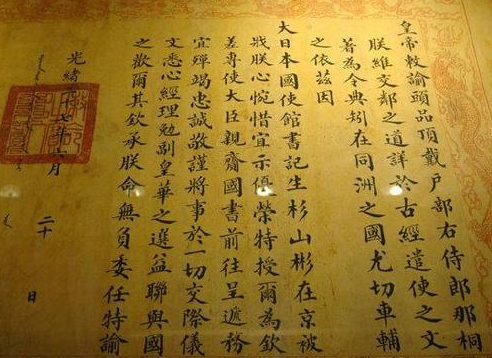 皇帝敕諭頭品頂戴户部右侍郎那桐
朕維交鄰之道詳於古經遣使之文
著為令典矧在同洲之國尤切車輔
之依茲因
大日本國使館書記生杉山彬在京被
戕朕心惋惜宜示優榮特授爾為欽
差專使大臣親齎國書前往呈遞務
宜殫竭忠誠敬謹將事於一切交際儀
文悉心經理勉副皇華之選益聯與國
之歡爾其欽承朕命無負委任特諭
光緒二十七年六月二十日